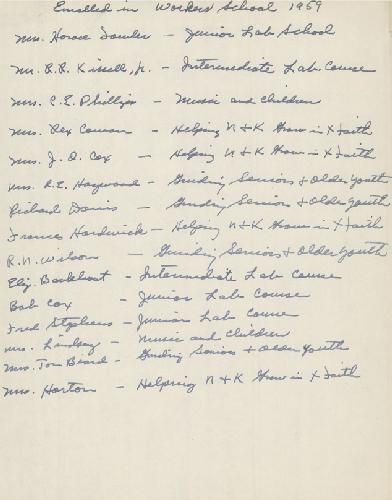 Enrolled in Workers School 1959
Mrs. Horace Fowler - Junior Lab School
Mrs. B.R. Kissell, Jr. - Intermediate Lab Course
Mrs. C.E. Phillips - Music and Children
Mrs. Rex Cowan - Helping N & K Grow in X Faith
Mrs. J. D. Cox - Helping N & K Grow in X Faith
Mrs. R.E. Haywood - Guiding Seniors & Older Youth
Richard Davis - Guiding Seniors & Older Youth
France Hardwick - Helping N & K Grow in X Faith
R.N. Wilson - Guiding Seniors & Older Youth
Eliz. - Intermediate Lab Course
Bob Cox - Junior Lab Course
Fred Stephens - Junior Lab Course
Mrs. Lindsay - Music and Children
Mrs. Tom Beard - Guiding Seniors & Older Youth
Mrs. Horton - Helping N & K Grow in X Faith